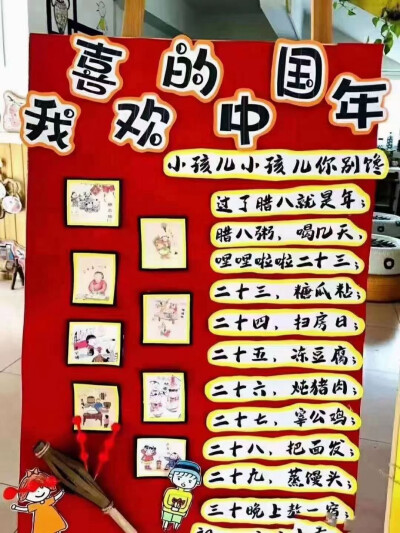 我喜欢的中国年
小孩儿小孩儿你别馋
过了腊八就是年;
腊八粥，喝几天,
哩哩啦啦二十三;
二十三，糖瓜粘;
二十四，扫房日;
二十五，冻豆腐;
二十六，炖猪肉;
二十七，宰公鸡;
二十八，把面发;
二十九，蒸馒头;
三十晚上熬一宿;